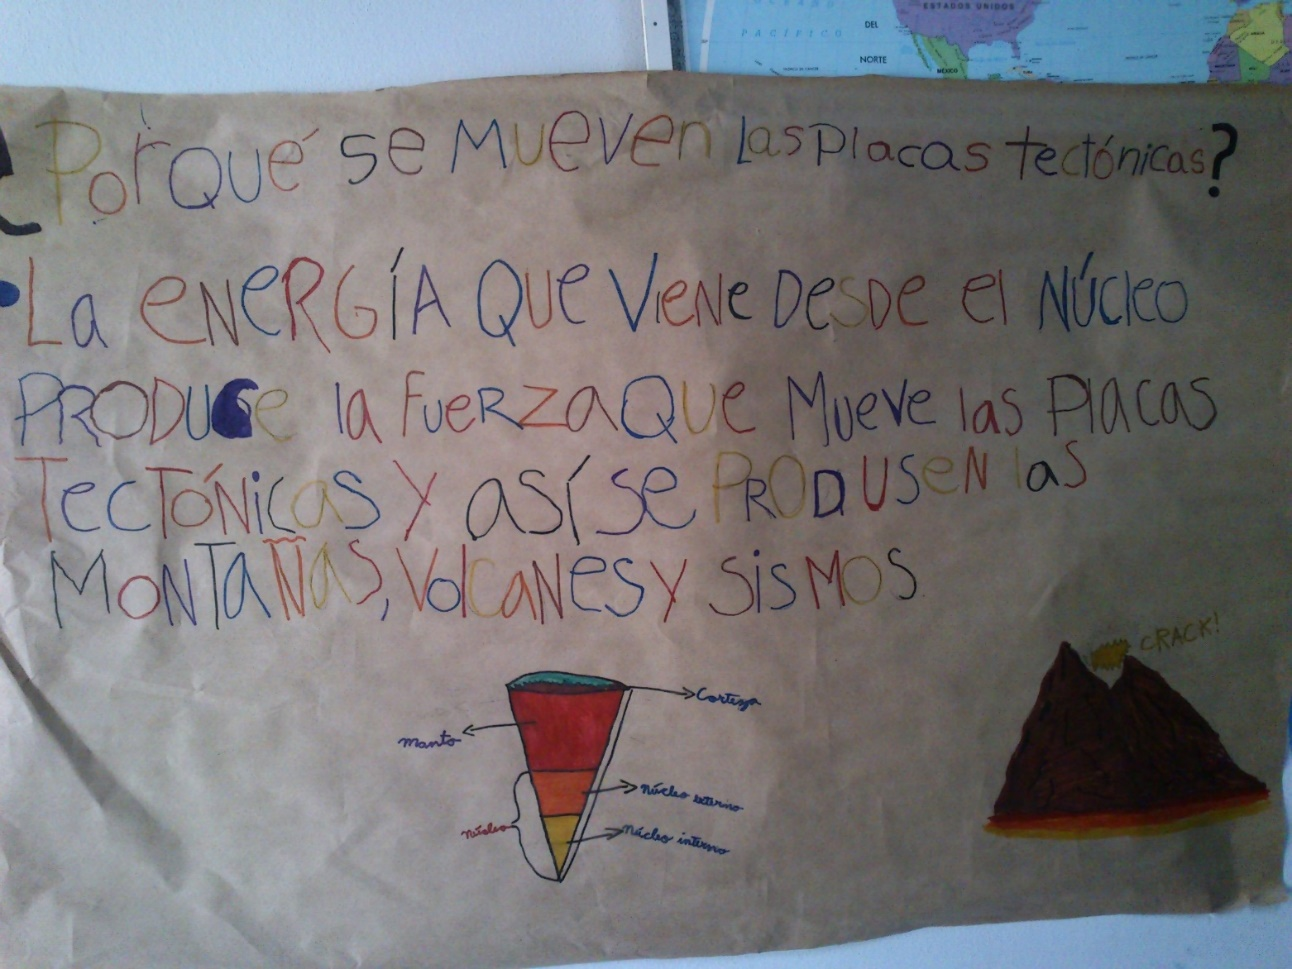 ESTADOS UNIDOS
OCEANO
PACÍFICO
DEL
NORTE
MÉXICO
¿Porqué se mueven las placas tectónicas?
La energía que viene desde el núcleo
produce la fuerza que mueve las placas
tectónicas y así se produsen las
montañas, volcanes y sismos
CRACK!
Corteza
manto
Núcleo externo
Núcleo
Núcleo interno